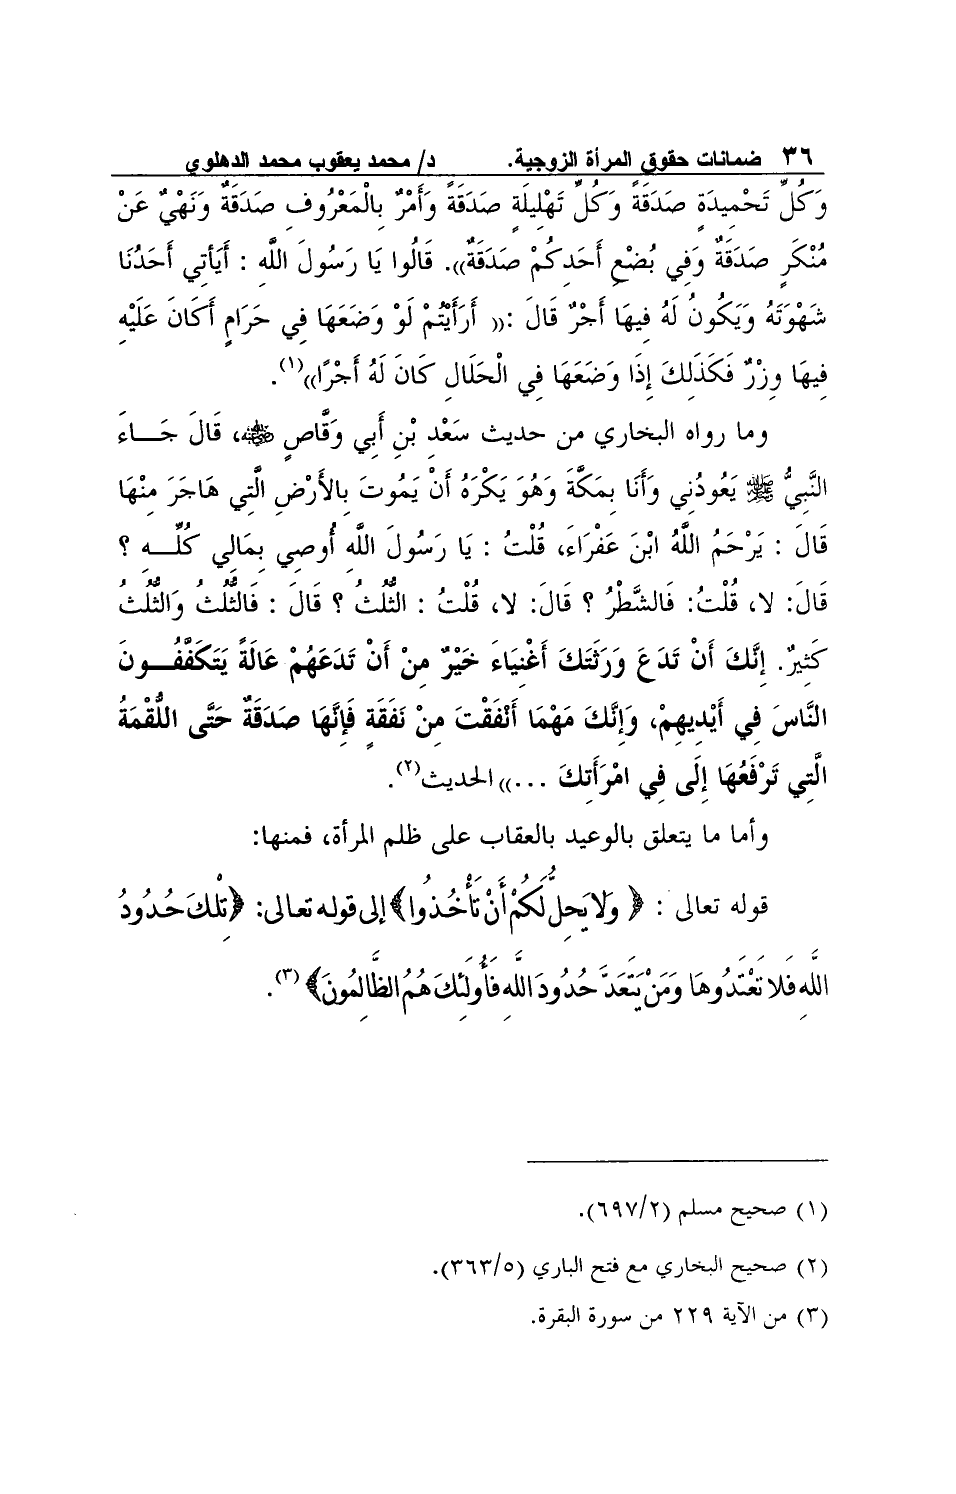 ٣٦ ضمانات حقوق المرأة الزوجية. د/ محمد يعقوب محمد الدهلوي
وَكُلِّ تَحْمِيدَةٍ صَدَقَةً وَكُلِّ تَهْلِيلَةٍ صَدَقَةً وَأَمْرٌ بِالْمَعْرُوفِ صَدَقَةٌ وَنَهْيٌ عَنْ
مُنْكَرٍ صَدَقَةٌ وَفِي بُضْعِ أَحَدِكُمْ صَدَقَةٌ)). قَالُوا يَا رَسُولَ اللَّهِ : أَيَأتِي أَحَدُنَا
شَهْوَتَهُ وَيَكُونُ لَهُ فِيهَا أَجْرٌ قَالَ :(( أَرَأَيْتُمْ لَوْ وَضَعَهَا فِي حَرَامٍ أَكَانَ عَلَيْهِ
فِيهَا وِزْرٌ فَكَذَلِكَ إِذَا وَضَعَهَا فِي الْحَلَالِ كَانَ لَهُ أَجْرًا))(١).
وما رواه البخاري من حديث سَعْدِ بْنِ أَبِي وَقَّاصٍ ﵁، قَالَ جَـــاءَ
النَّبِيُّ ﷺ يَعُودُنِي وَأَنَا بِمَكَّةَ وَهُوَ يَكْرَهُ أَنْ يَمُوتَ بِالأَرْضِ الَّتِي هَاجَرَ مِنْهَا
قَالَ : يَرْحَمُ اللَّهُ ابْنَ عَفْرَاءَ، قُلْتُ : يَا رَسُولَ اللَّهِ أُوصِي بِمَالِي كُلِّـــهِ ؟
قَالَ: لا، قُلْتُ: فَالشَّطْرُ ؟ قَالَ: لا، قُلْتُ : الثُّلُثُ ؟ قَالَ : فَالثُّلُثُ وَالثُّلُثُ
كَثِيرٌ. إِنَّكَ أَنْ تَدَعَ وَرَثَتَكَ أَغْنِيَاءَ خَيْرٌ مِنْ أَنْ تَدَعَهُمْ عَالَةً يَتَكَفَّفُـــونَ
النَّاسَ فِي أَيْدِيهِمْ، وَإِنَّكَ مَهْمَا أَنْفَقْتَ مِنْ نَفَقَةٍ فَإِنَّهَا صَدَقَةٌ حَتَّى اللُّقْمَةُ
الَّتِي تَرْفَعُهَا إِلَى فِي امْرَأَتِكَ ...)) الحديث(٢).
وأما ما يتعلق بالوعيد بالعقاب على ظلم المرأة، فمنها:
قوله تعالى : ﴿ وَلَا يَحِلُّ لَكُمْ أَنْ تَأْخُذُوا﴾ إلى قوله تعالى: ﴿تِلْكَ حُدُودُ
اللَّهِ فَلَا تَعْتَدُوهَا وَمَنْ يَتَعَدَّ حُدُودَ اللَّهِ فَأُولَئِكَ هُمُ الظَّالِمُونَ﴾(٣).
(١) صحيح مسلم (٦٩٧/٢).
(٢) صحيح البخاري مع فتح الباري (٣٦٣/٥).
(٣) من الآية ٢٢٩ من سورة البقرة.